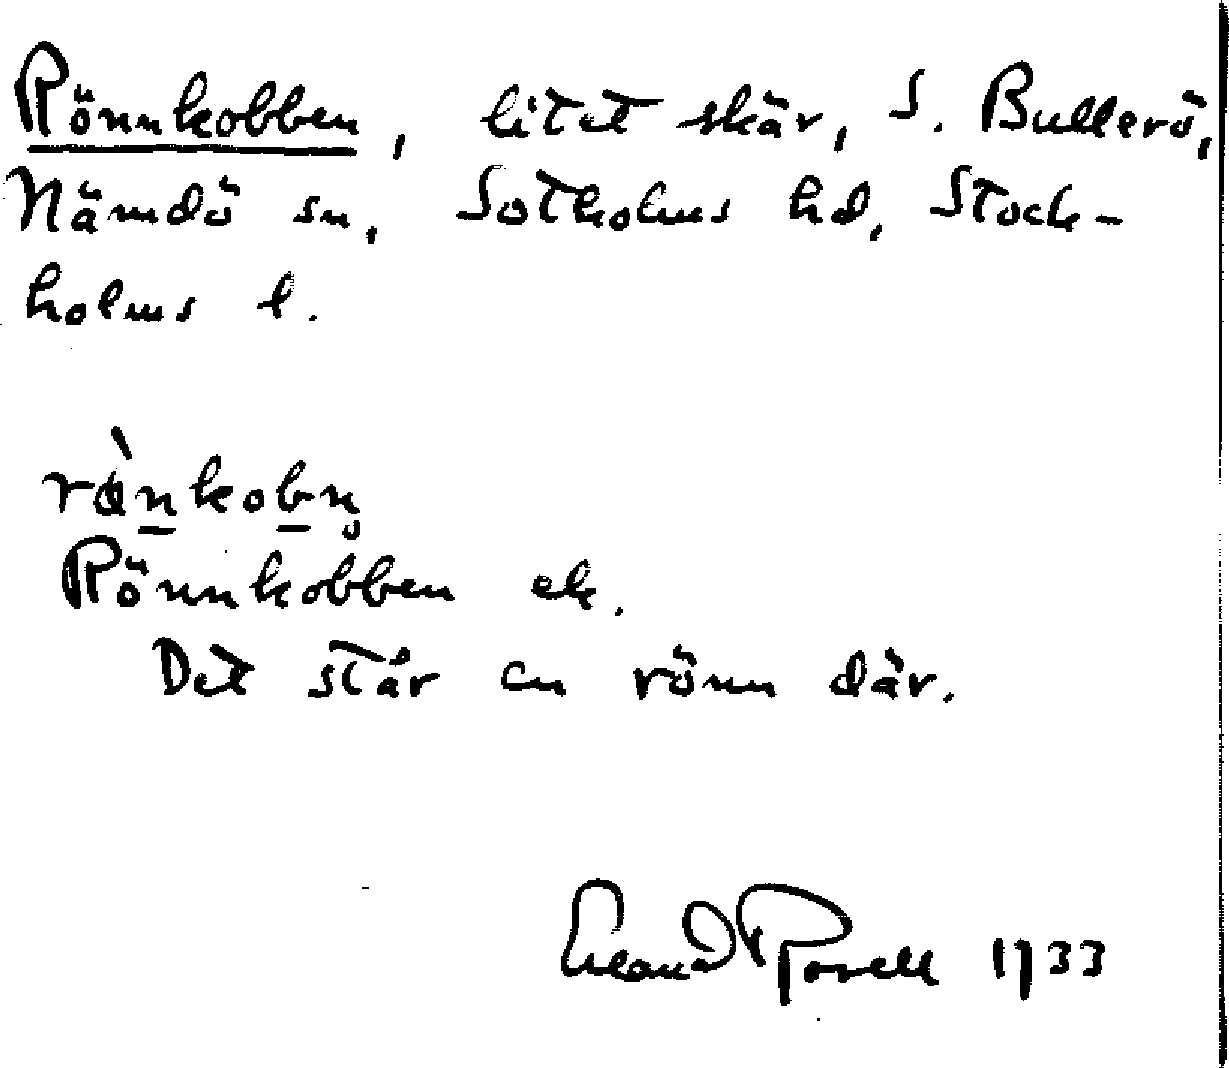 Rönnkobben, litet skär, S. Bullerö,
Nämdö sn, Sotholms hd, Stock-
holms l.
rὰn̲kob̲n̥
Rönnkobben ek.
Det står en rönn där.
Erland Rosell 1933